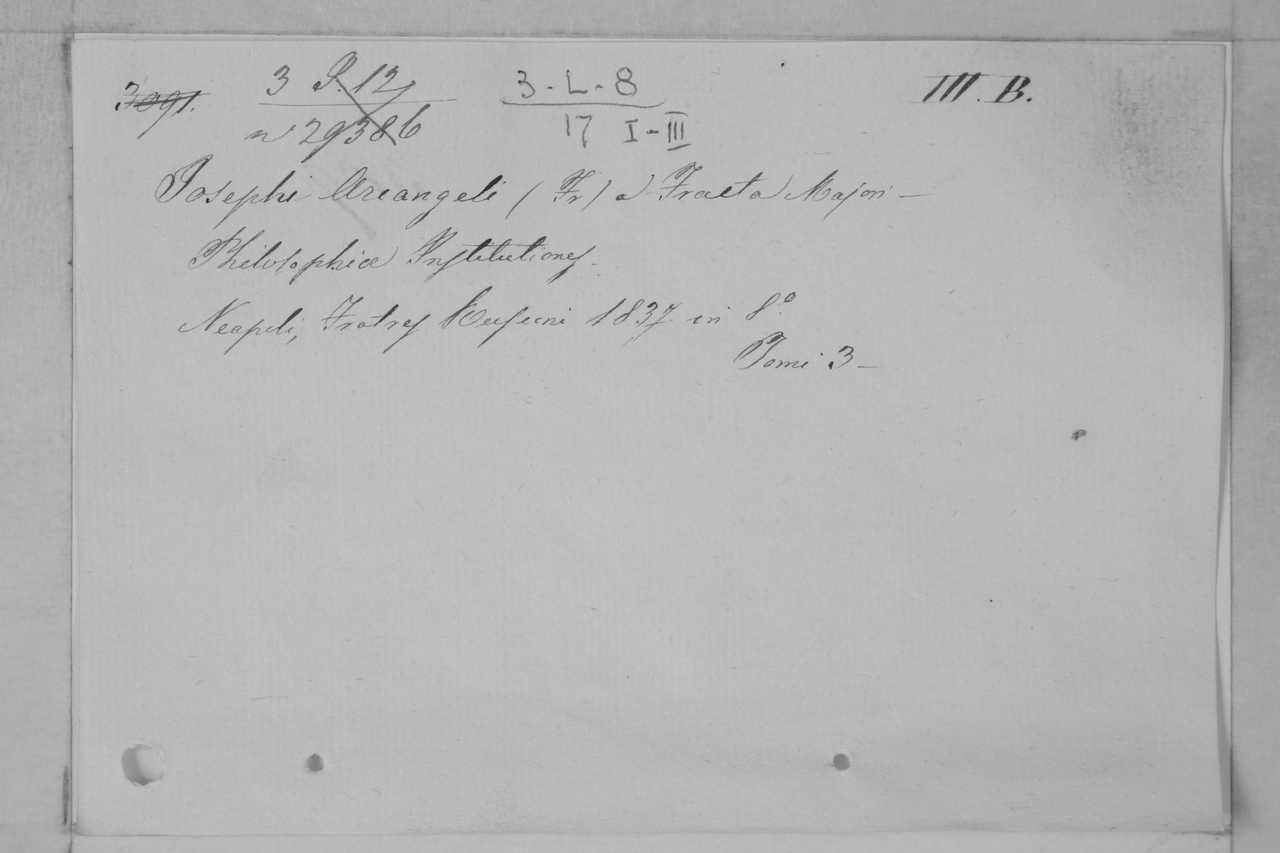 3091. 3 P. 12 3-L-8 III. B.
n 29386 17 I-III
Josephi Arcangeli (Fr) a Fracta Majori —
Philosophiæ Institutiones.
Neapoli, Fratres 1837. in 8º
Tomi 3 —